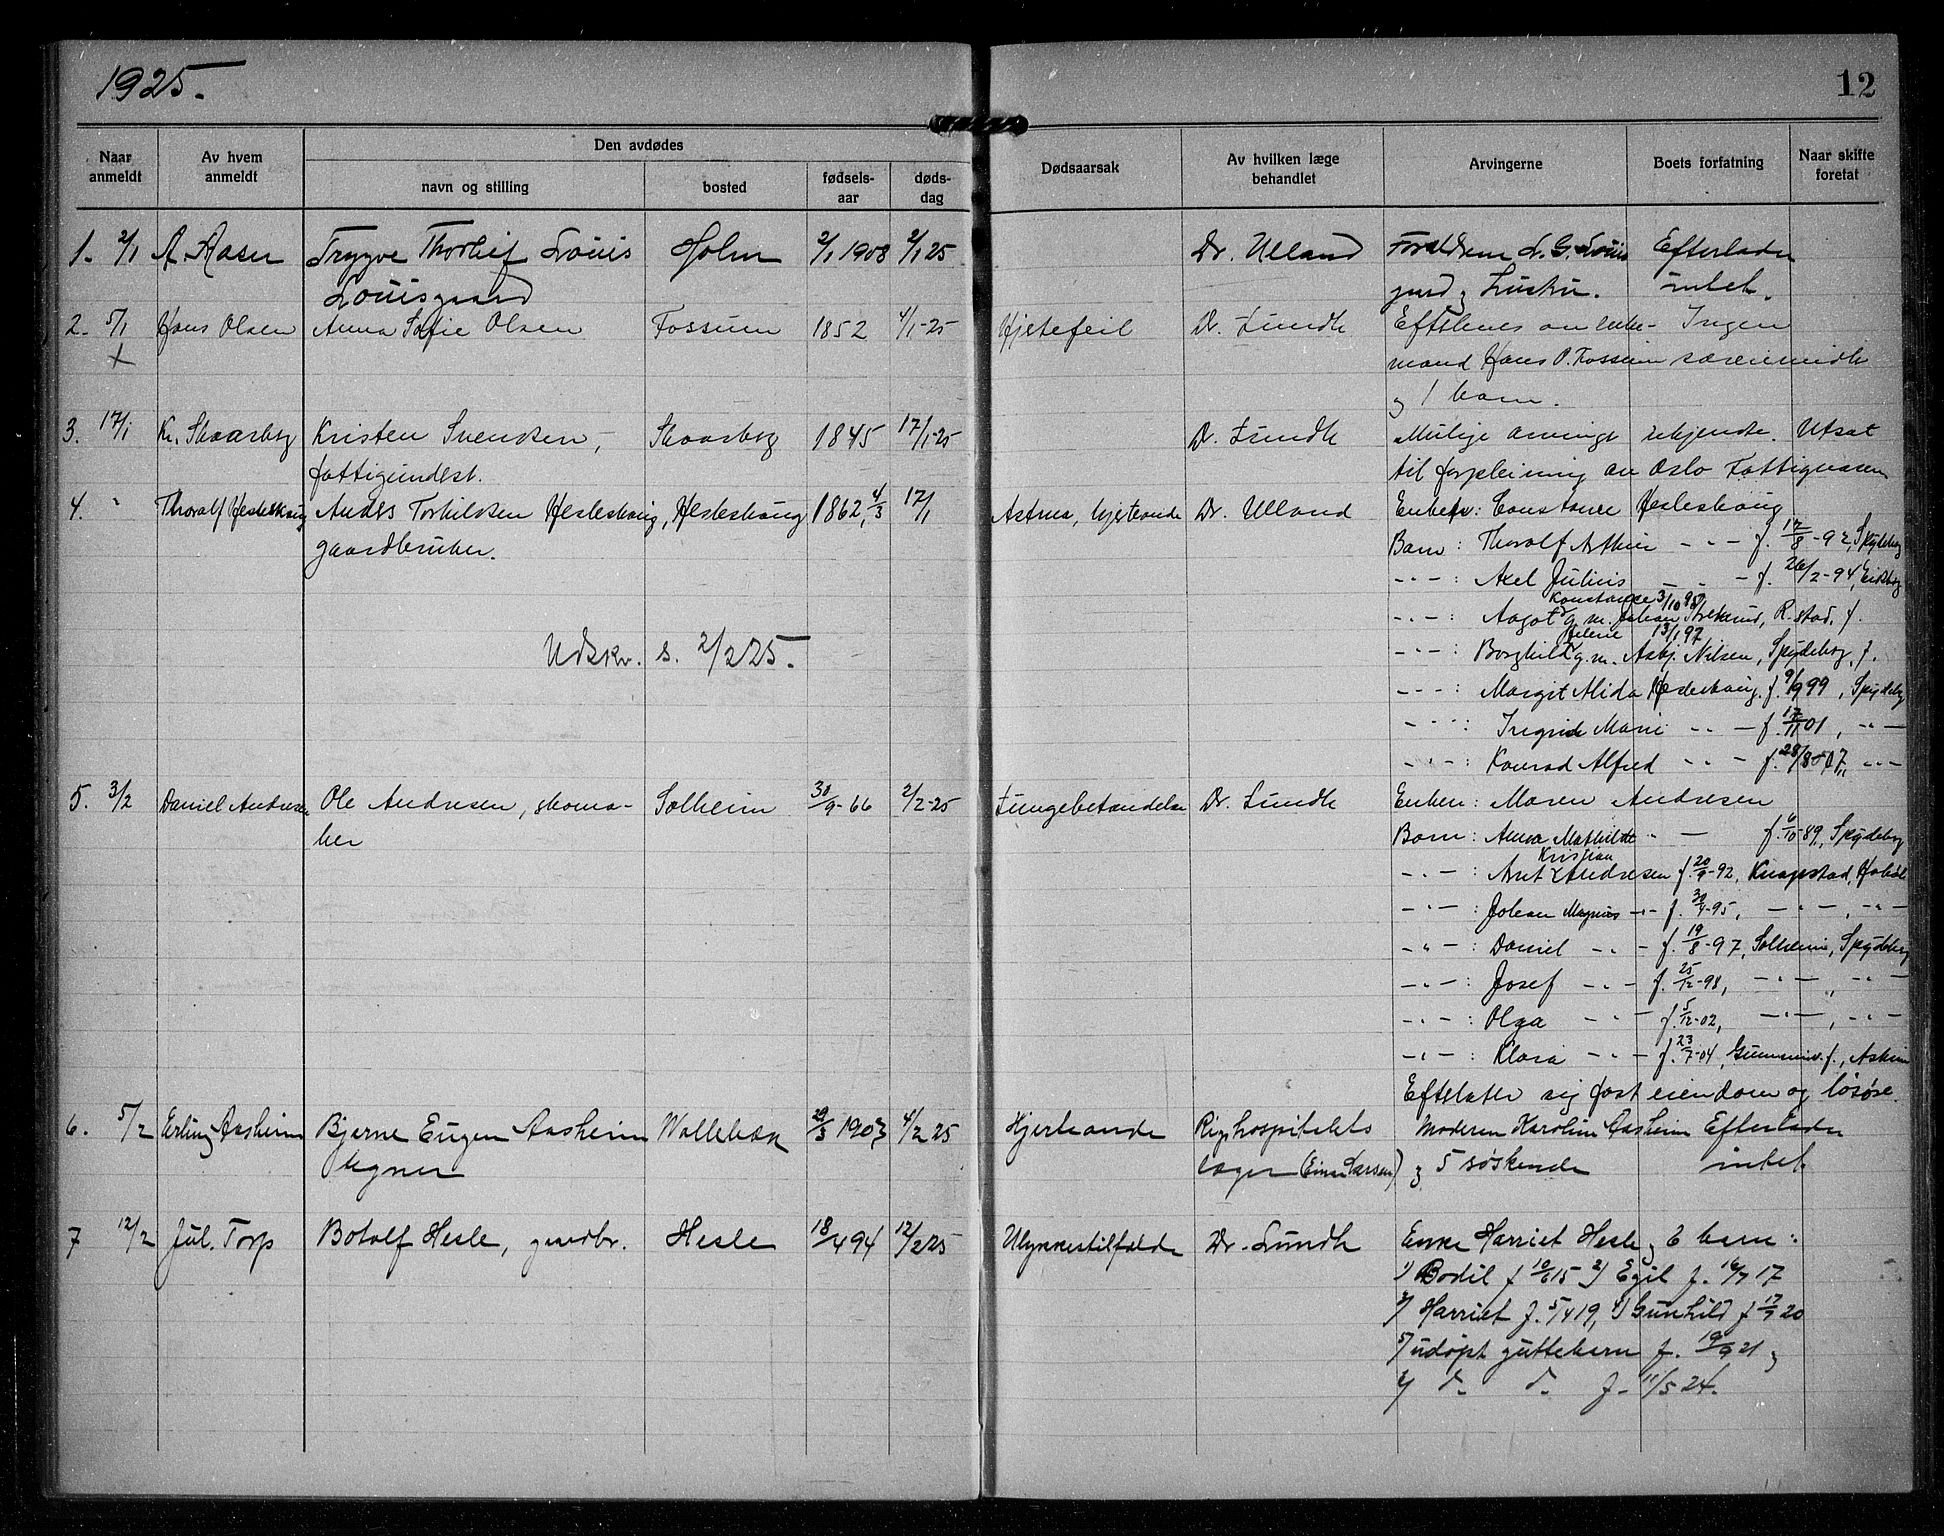 1925.
12
Naar anmeldt
Av hvem anmeldt
Den avdødes
navn og stilling
bosted
fødsels-aar
døds-dag
Dødsaarsak
Av hvilken læge behandlet
Arvingerne
Boets forfatning
Naar skifte foretat
1. 2/1 A Aasen Trygve Thorleif Louis Holm 2/1 1908 2/1 25 Dr. Ulland Forældrene L. G. Louis Efterlader
Louisgaard gaard og hustru. intet.
2. 5/1 Hans Olsen Anna Sofie Olsen Fossum 1852 4/1-25 Hjetefeil Dr. Lundh Efterlevs av enke- Ingen
+ mand Hans P. Fossum særeiemidle
og 1 barn.
3. 17/1 Kr. Skaarbog Kristen Svendsen, Skaarbog 1845 17/1-25 Dr. Lundh Mulige arvinge ukjendte. Utsat
fattigundest. til forpleining av Oslo Fattigvæsen
4. " Thoralf Hesleskaug Andes Torkildsen Hesleskaug, Hesleskaug 1862, 4/3 17/1 Astma, hjerteonde Dr. Ulland Enken: Constance Hesleskaug
gaardbruker. Barn: Thoralf Arthur - " - f. 17/8-92, Spydeberg
- " - : Axel Julius - " - f. 26/2-94, Eidsberg
Konstance 3/10 95
- " - : Aagot g. m. Johan, R.stad, f.
Helene 13/1 97
Udskr. s. 2/2 25. - " - : Borghild g. m. Asbj. Nilsen, Spydeberg, f.
- " - : Margit Alida Hesleskaug, f. 9/9 99, Spydeberg
- " - : Ingrid Marie - " - f. 17/11 01, - " -
- " - : Konrad Alfred - " - f. 28/8-07, - " -
5. 3/2 Daniel Andresen Ole Andresen, skoma- Solheim 30/9-66 2/2-25 Lungebetændelse Dr. Lundh Enken: Maren Andresen
ker Barn: Anna Mathilde " - f. 6/10 89, Spydeberg
Kristian
- " - : Arnt Andresen f. 20/9-92, Knapstad, Hobøl
- " - : Johan Magnus - " - f. 30/4-95, - " -, - " -
- " - : Daniel - " - f. 19/8-97, Solheim, Spydeberg
- " - : Josef - " - f. 25/12-98, - " - - " -
- " - : Olga - " - f. 5/12-02, - " -, - " -
- " - : Klara - " - f. 23/7-04, Gummiv. f., Askim
Eftelater sig fast eiendom og løsøre.
6. 5/2 Erling Aasheim Bjarne Eugen Aasheim Wollebæk 29/3 1903 4/2 25 Hjerteonde Rigshospitalets Moderen Karoline Aasheim Efterlader
Agner læger (Einar Larsen) og 5 søskende intet.
7 12/2 Jul. Torp Botolf Hesle, gaardbr. Hesle 18/4 94 12/2 25 Ulykkestilfælde Dr. Lundh Enke Harriet Hesle og 6 barn:
1) Bodil f 10/6 15 2) Egil f. 16/7 17
3) Harriet f. 5/4 19, 4) Gunhild f 17/7 20
5) udøpt guttebarn f. 19/9 21 og
6) d. d. f. 11/5 24.